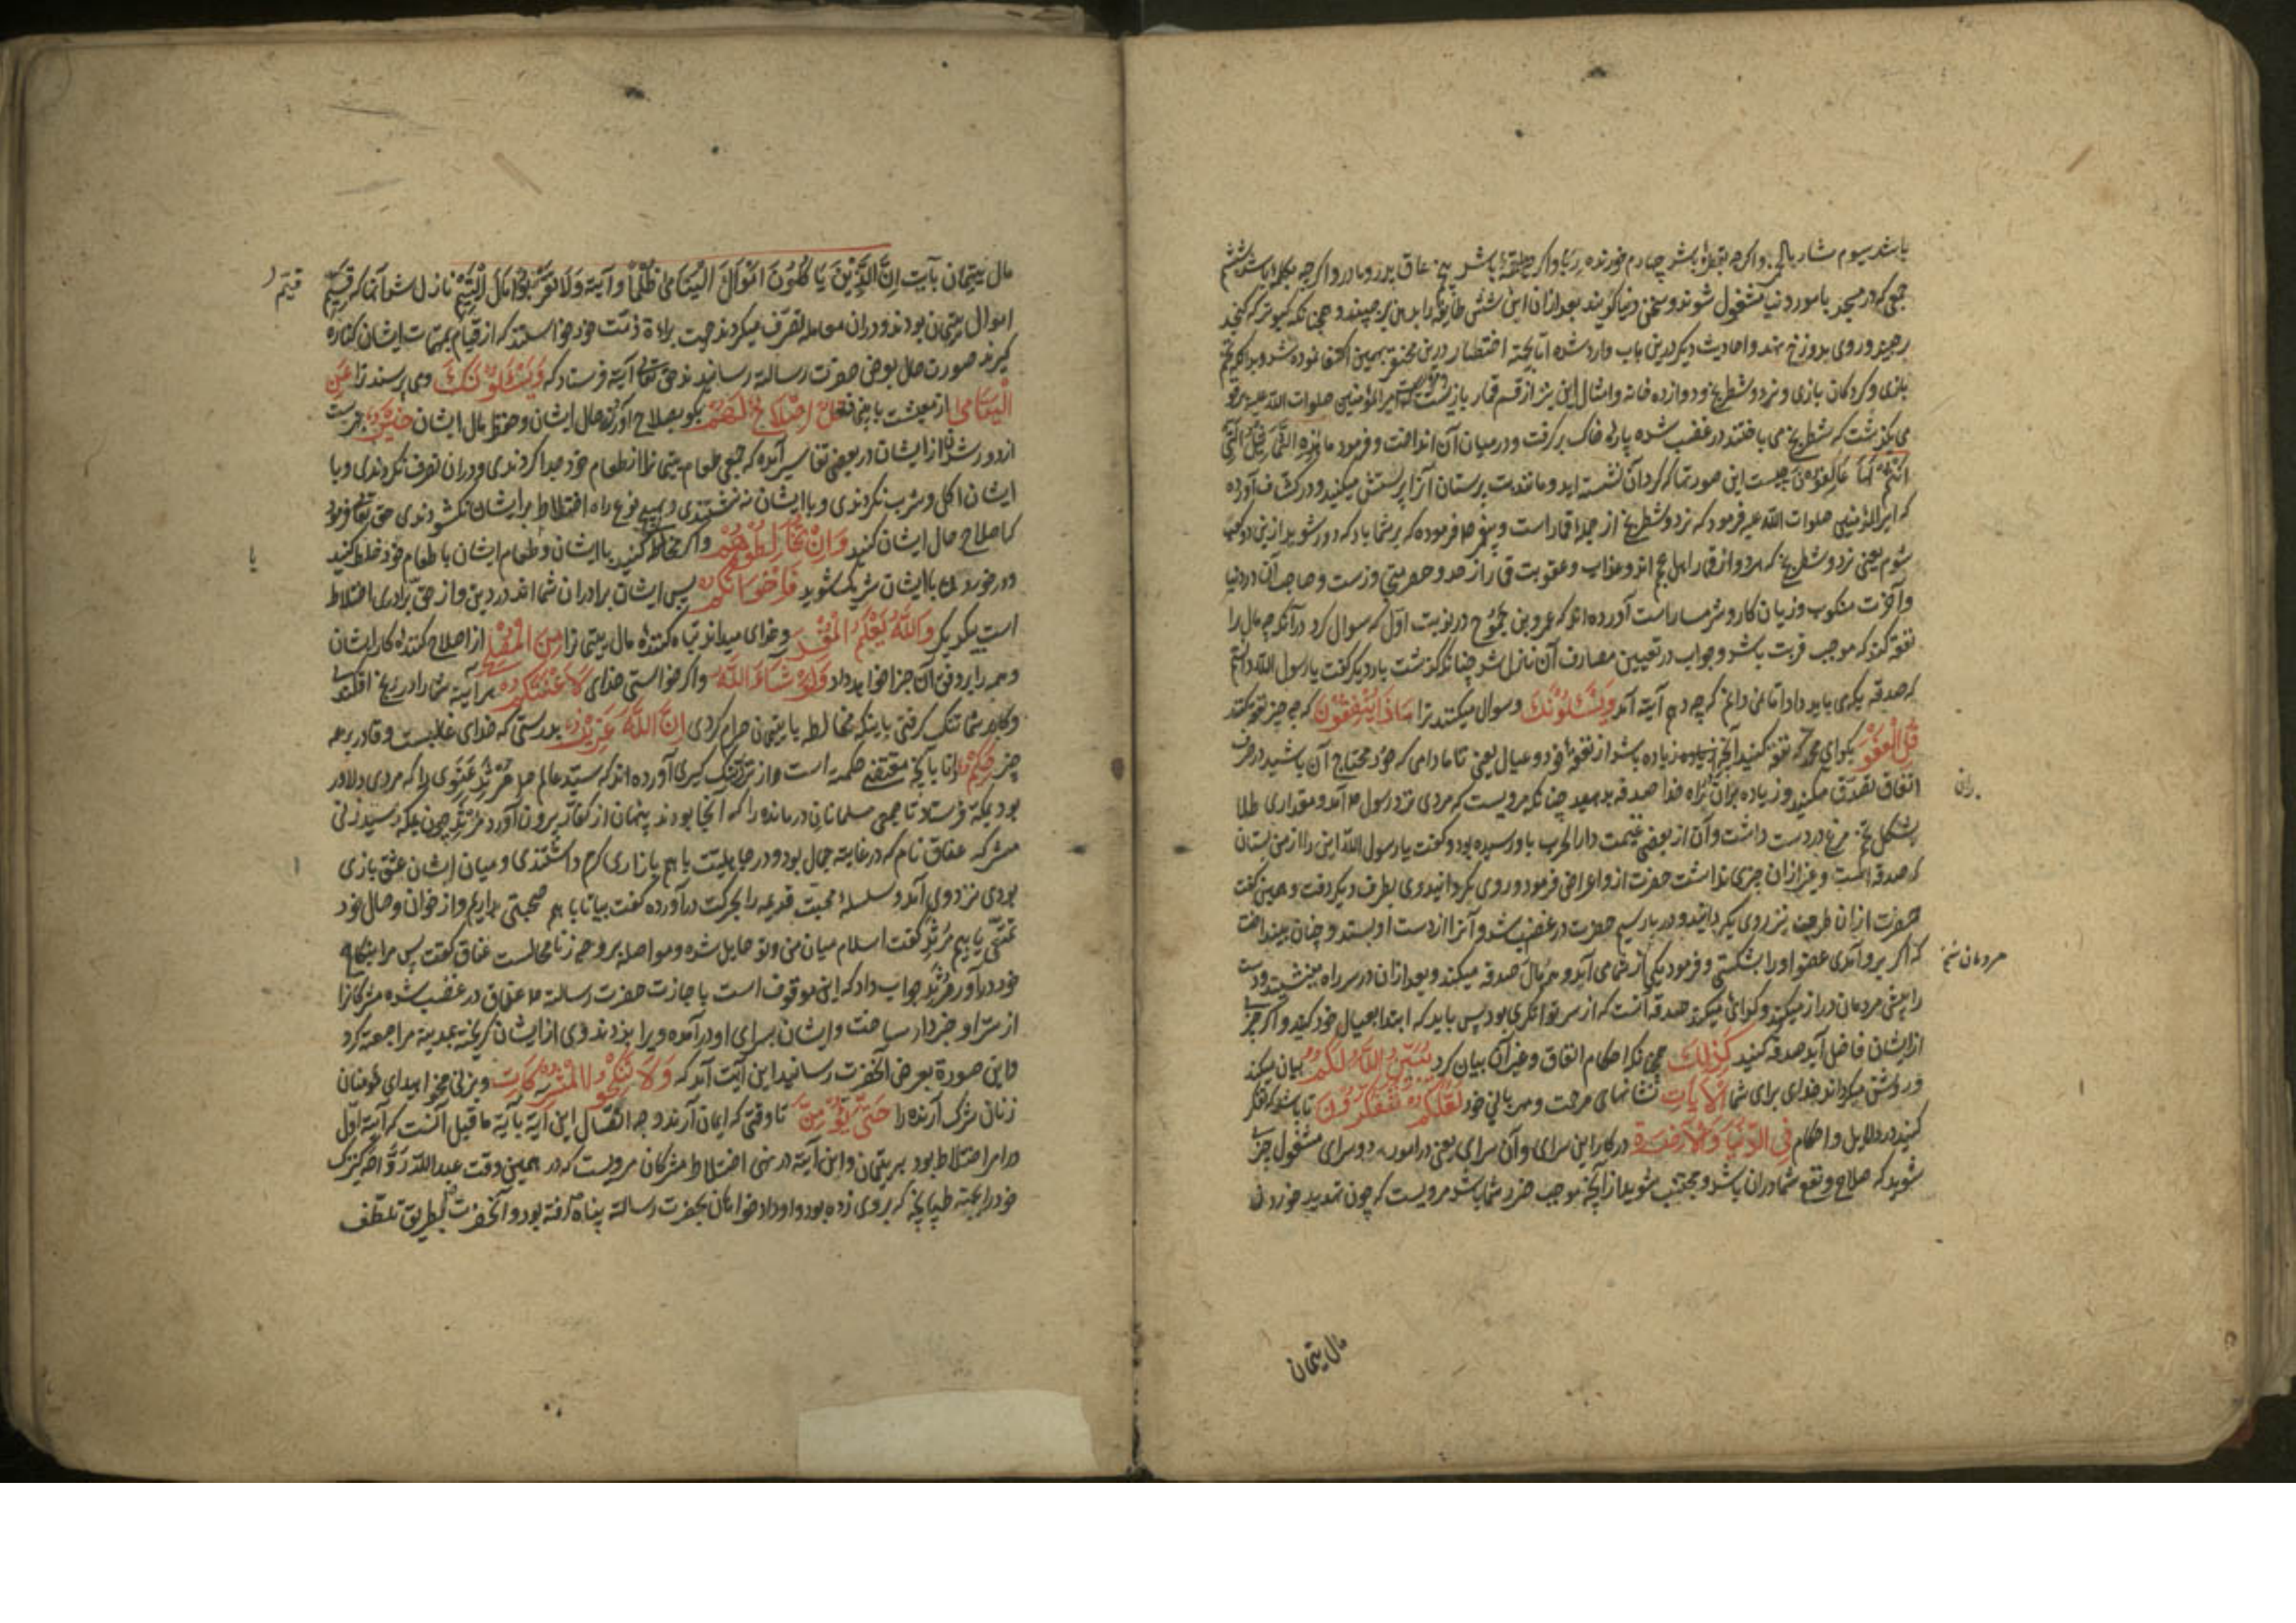 باشد سیوم شارب الخمر و اگرچه بقطرهٔ باشد چهارم خورنده ربا و اگر حلقهٔ باشد پنجم عاق پدر و مادر و اگرچه بکلمهٔ باشد ششم
جمعی که در مسجد بامور دنیا مشغول شوند و سخن دنیا گویند بعد ازان این شش طایفه را بدین برچیند و همچنانکه کبوتر که کنجد
برچیند و روی بدوزخ نهد و احادیث دیگر درین باب وارد شده اما بجهة اختصار درین مختصر بهمین اکتفا نموده شد و بدانکه تخم
بازی و گردکان بازی و نرد و شطرنج و دوازده خانه و امثال این نیز از قسم قمار بازیست امیرالمؤمنین صلوات الله علیه بقو
می گذشت که شطرنج می باختند در غضب شده پارهٔ خاک برگرفت و در میان آن انداخت و فرمود ما هذه التماثیل التی
انتم لها عاکفون چیست این صورتها که گرد آن نشسته اید و مانند بت پرستان آنرا پرستش میکنید و در کشاف آورده
که امیرالمؤمنین صلوات الله علیه فرمود که نرد و شطرنج از جملهٔ قمار است و پیغمبر ص فرموده که بر شما باد که دور شوید ازین دو کعب
شوم یعنی نرد و شطرنج که هر دو از قمار اهل عجم اند و عذاب و عقوبت قمار از حد و حصر بیرونست و صاحب آن در دنیا
و آخرت منکوب و زیان کار و شرمسار است آورده اند که عمرو بن جموح در نوبت اول که سوال کرد در آنکه چه مال را
نفقه کند که موجب قربت باشد و جواب در تعیین مصارف آن نازل شد چنانکه گذشت بار دیگر گفت یا رسول الله دانستم
که صدقه بکه می باید داد اما نمی دانم که چه دهم آیة آمد ویسئلونک و سوال میکنند ترا ماذا ینفقون که چه چیز نفقه کنند
قل العفو بگو ای محمد که نفقه کنید آنچه زیاده باشد از نفقه خود و عیال یعنی تا مادامی که خود محتاج آن باشید در صرف
انفاق تصدق مکنید و زیاده بران در راه خدا صدقه بدهید چنانکه مرویست که مردی نزد رسول ص آمد و مقداری طلا
بشکل تخم مرغ در دست داشت و آن از بعضی غنیمت دار الحرب باو رسیده بود و گفت یا رسول الله این را از من بستان
که صدقه است و غیر ازان چیزی ندارم حضرت ازو اعراض فرمود و روی بگردانید وی بطرف دیگر رفت و همین گفت
حضرت ازان طرف نیز روی بگردانید و در بار سیم حضرت در غضب شد و آنرا از دست او بستد و چنان بینداخت
که اگر برو آمدی عضو او را بشکستی و فرمود یکی از شما می آید و همه مال صدقه میکند و بعد ازان در سر راه می نشیند و دست
را پیش مردمان دراز میکند و گدائی میکند صدقه آنست که از سر توانگری بود پس باید که ابتدا بعیال خود کنید و اگر چیزی
از ایشان فاضل آید صدقه کنید کذلک همچنانکه احکام انفاق و غیر آن بیان کرد یبین الله لکم بیان میکند
و روشن میگرداند خدای برای شما الآیات نشانهای مرحمت و مهربانی خود لعلکم تتفکرون تا باشد که تفکر
کنید در دلایل و احکام فی الدنیا و الآخرة در کار این سرای و آن سرای یعنی در امور دو سرای مشغول چیزی
شوید که صلاح و نفع شما دران باشد و مجتنب شوید از آنچه موجب ضرر شما باشد مرویست که چون تهدید خوردن
ران
مردمان
مال یتیمان
مال یتیمان بآیت ان الذین یاکلون اموال الیتامی ظلما و آیة ولا تقربوا مال الیتیم نازل شد آنها که قیم
اموال یتیمان بودند و دران معامله تصرف میکردند جهت براءة ذمت خود خواستند که از قیام بمهمات ایشان کناره
گیرند صورت حال بعرض حضرت رسالة رسانیدند حق تعالی آیة فرستاد که ویسئلونک و می پرسند ترا عن
الیتامی از معیشت با یتیمان قل اصلاح لهم بگو بصلاح آوردن حال ایشان و حفظ مال ایشان خیر بهترست
از دور شدن از ایشان در بعضی تفاسیر آمده که جمعی طعام یتیمی را از طعام خود جدا کردندی و دران تصرف نکردندی و با
ایشان اکل و شرب نکردندی و با ایشان ننشستندی و بهیچ نوع راه اختلاط بر ایشان نگشودندی حق تعالی فرمود
که اصلاح حال ایشان کنید وان تخالطوهم و اگر مخالطه کنید با ایشان و طعام ایشان با طعام خود خلط کنید
و در خوردن با ایشان شریک شوید فاخوانکم پس ایشان برادران شما اند در دین و از حق برادری اختلاط
است بیکدیگر والله یعلم المفسد و خدای میداند تباه کنندهٔ مال یتیمی را من المصلح از اصلاح کنندهٔ کار ایشان
و همه را بر وفق آن جزا خواهد داد ولو شاء الله و اگر خواستی خدای لاعنتکم هر آینه شما را در رنج افکندی
و کار بر شما تنگ گرفتی باینکه مخالطه با یتیمان حرام کردی ان الله عزیز بدرستی که خدای غالبست و قادر بر همه
چیز حکیم دانا بآنچه مقتضی حکمة است آورده اند که سید عالم ص مرثد غنوی را که مردی دلاور
بود بمکة فرستاد تا جمعی مسلمانان درمانده را که آنجا بودند پنهان از کفار بیرون آورد مرثد چون بمکه رسید زنی
مشرکه عناق نام که در غایة جمال بود و در جاهلیت با هم بازاری گرم داشتندی و میان ایشان عشق بازی
بودی نزد وی آمد و سلسلهٔ محبت قدیمه را بحرکت درآورده گفت بیا تا با هم صحبتی بداریم و از خوان وصال خود
تمتعی یابیم مرثد گفت اسلام میان من و تو حایل شده و مواصله بر وجه زنا محالست عناق گفت پس مرا بنکاح
خود درآور مرثد جواب داد که این موقوف است باجازت حضرت رسالة ص عناق در غضب شده مشرکانرا
از سر او خبردار ساخت و ایشان بسرای او درآمده ویرا بزدند وی از ایشان گریخته بمدینه مراجعة کرد
و این صورة بعرض آنحضرت رسانید این آیت آمد که ولا تنکحوا المشرکات و بزنی مخواهید ای مؤمنان
زنان شرک آرنده را حتی یؤمن تا وقتی که ایمان آرند وجه اتصال این آیة بآیة ماقبل آنست که آیة اول
در امر اختلاط بود بر یتیمان و این آیة در نهی اختلاط مشرکان مرویست که در همین وقت عبدالله رواحه کنیزک
خود را بجهة طپانچه که بر وی زده بود و او داد خواهان بحضرت رسالة پناه رفته بود و آنحضرت بطریق تلطف
قیم
یا